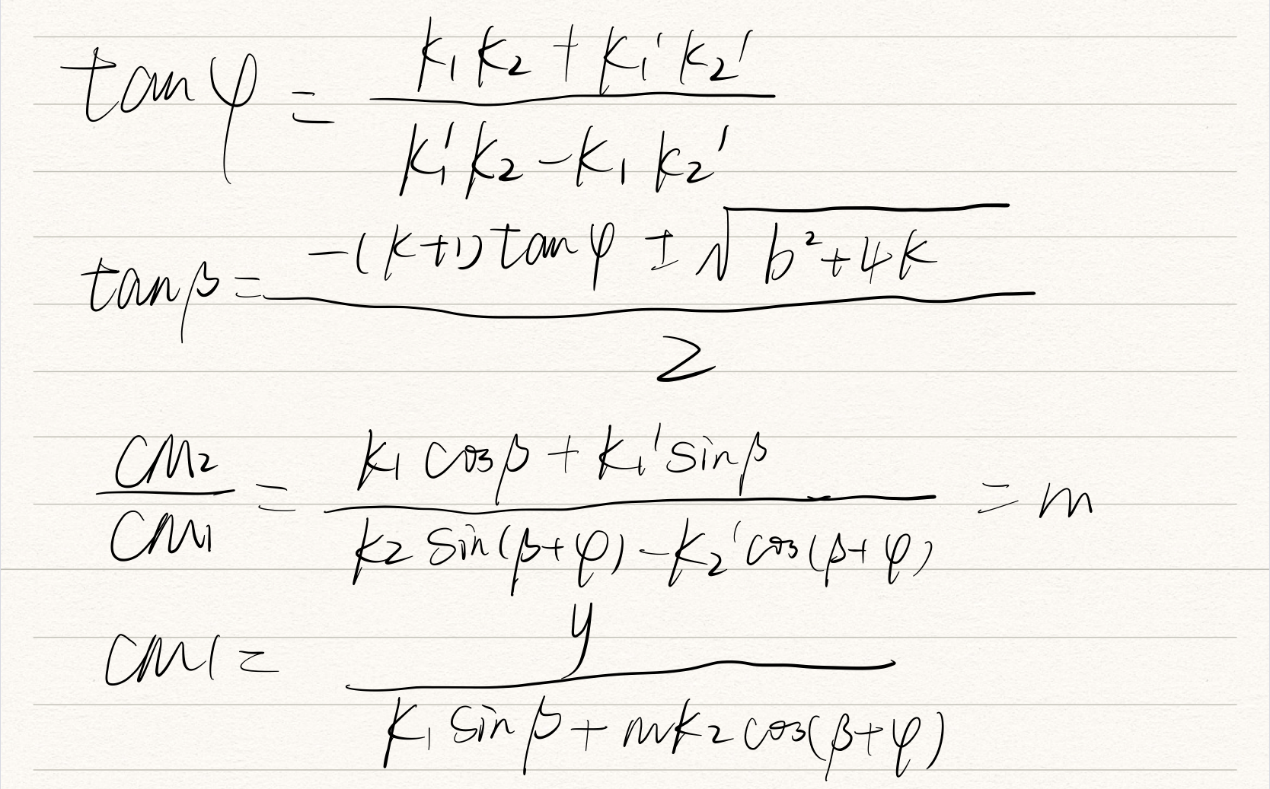 tanφ = (k₁k₂ + k₁'k₂') / (k₁'k₂ - k₁k₂')
tanβ = (-(k+1)tanφ ± √(b²+4k)) / 2
CM₂ / CM₁ = (k₁cosβ + k₁'sinβ) / (k₂sin(β+φ) - k₂'cos(β+φ)) = m
CM₁ = y / (k₁sinβ + mk₂cos(β+φ))